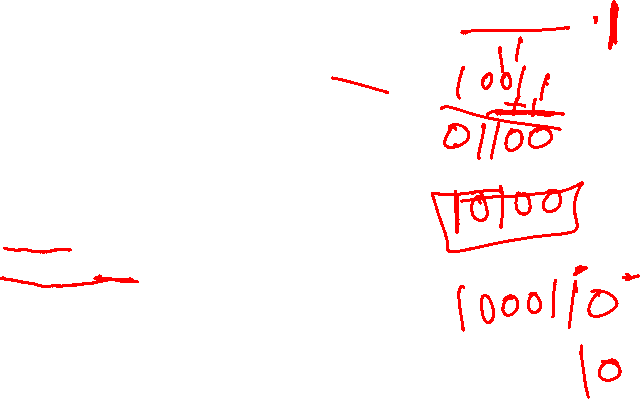 1
11
10011
+1
01100
10100
1000110
10